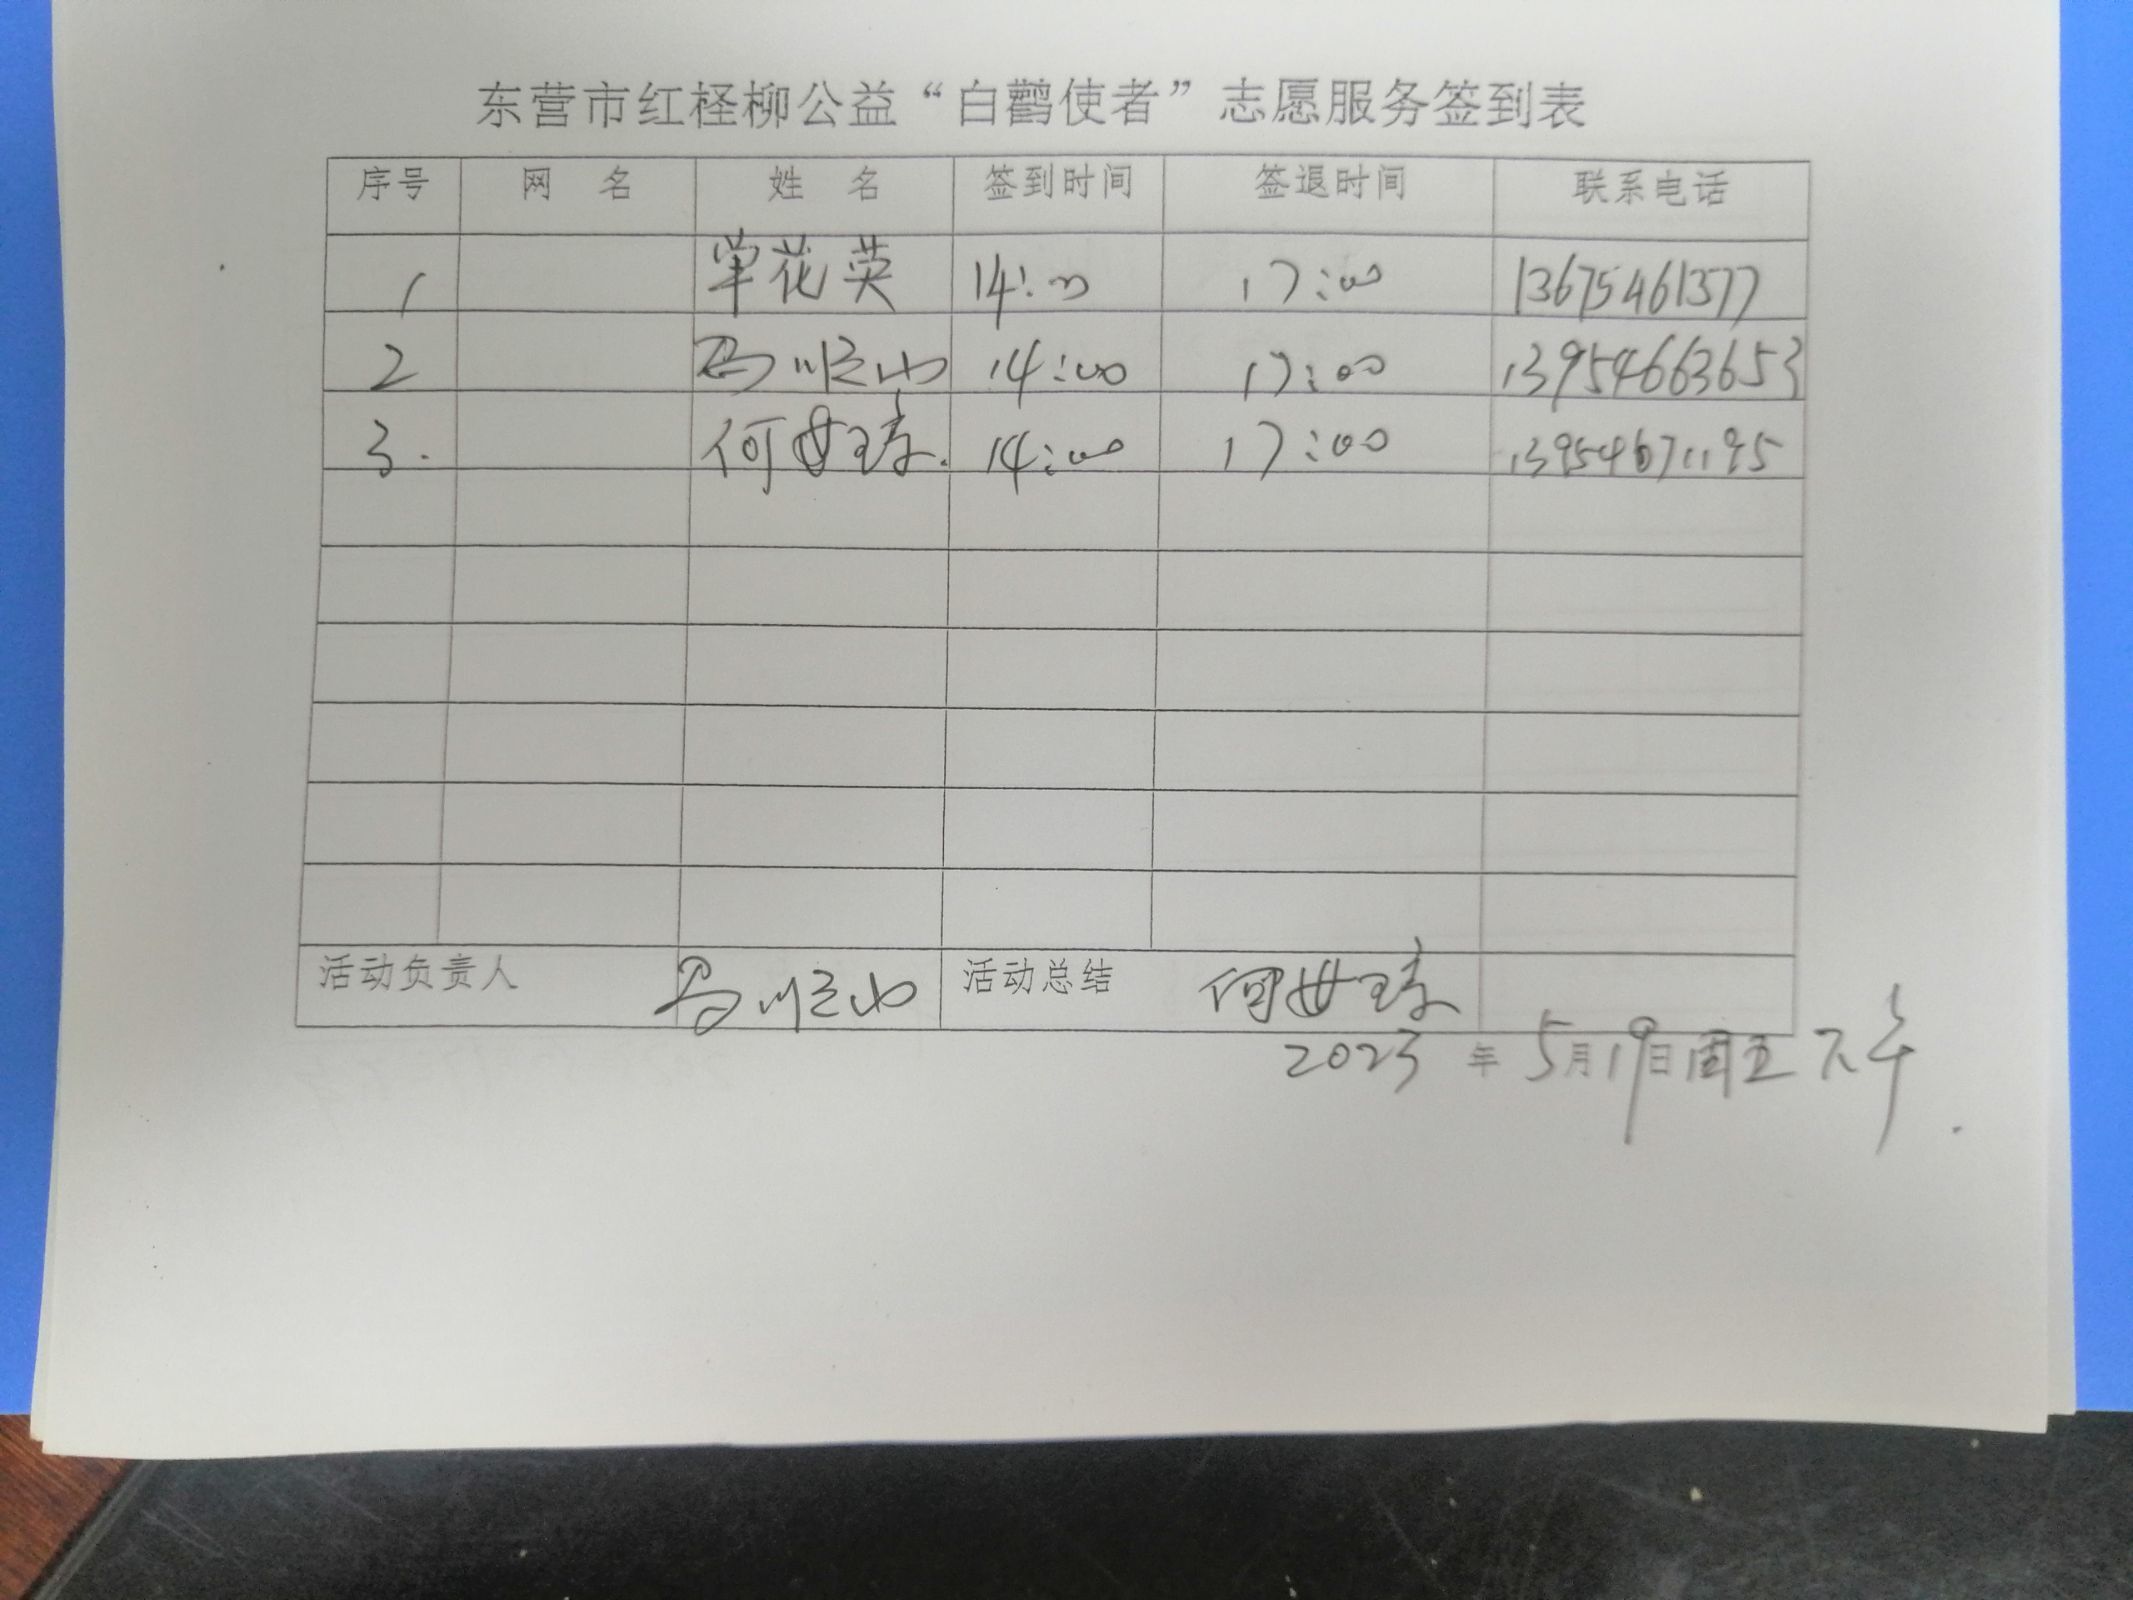 东营市红柽柳公益“白鹳使者”志愿服务签到表
序号 网 名 姓 名 签到时间 签退时间 联系电话
1 单花英 14:00 17:00 13675461377
2 马顺山 14:00 17:00 13954663653
3. 何 14:00 17:00 13954671195
活动负责人 马顺山 活动总结 何
2023 年 5月19日周五下午.